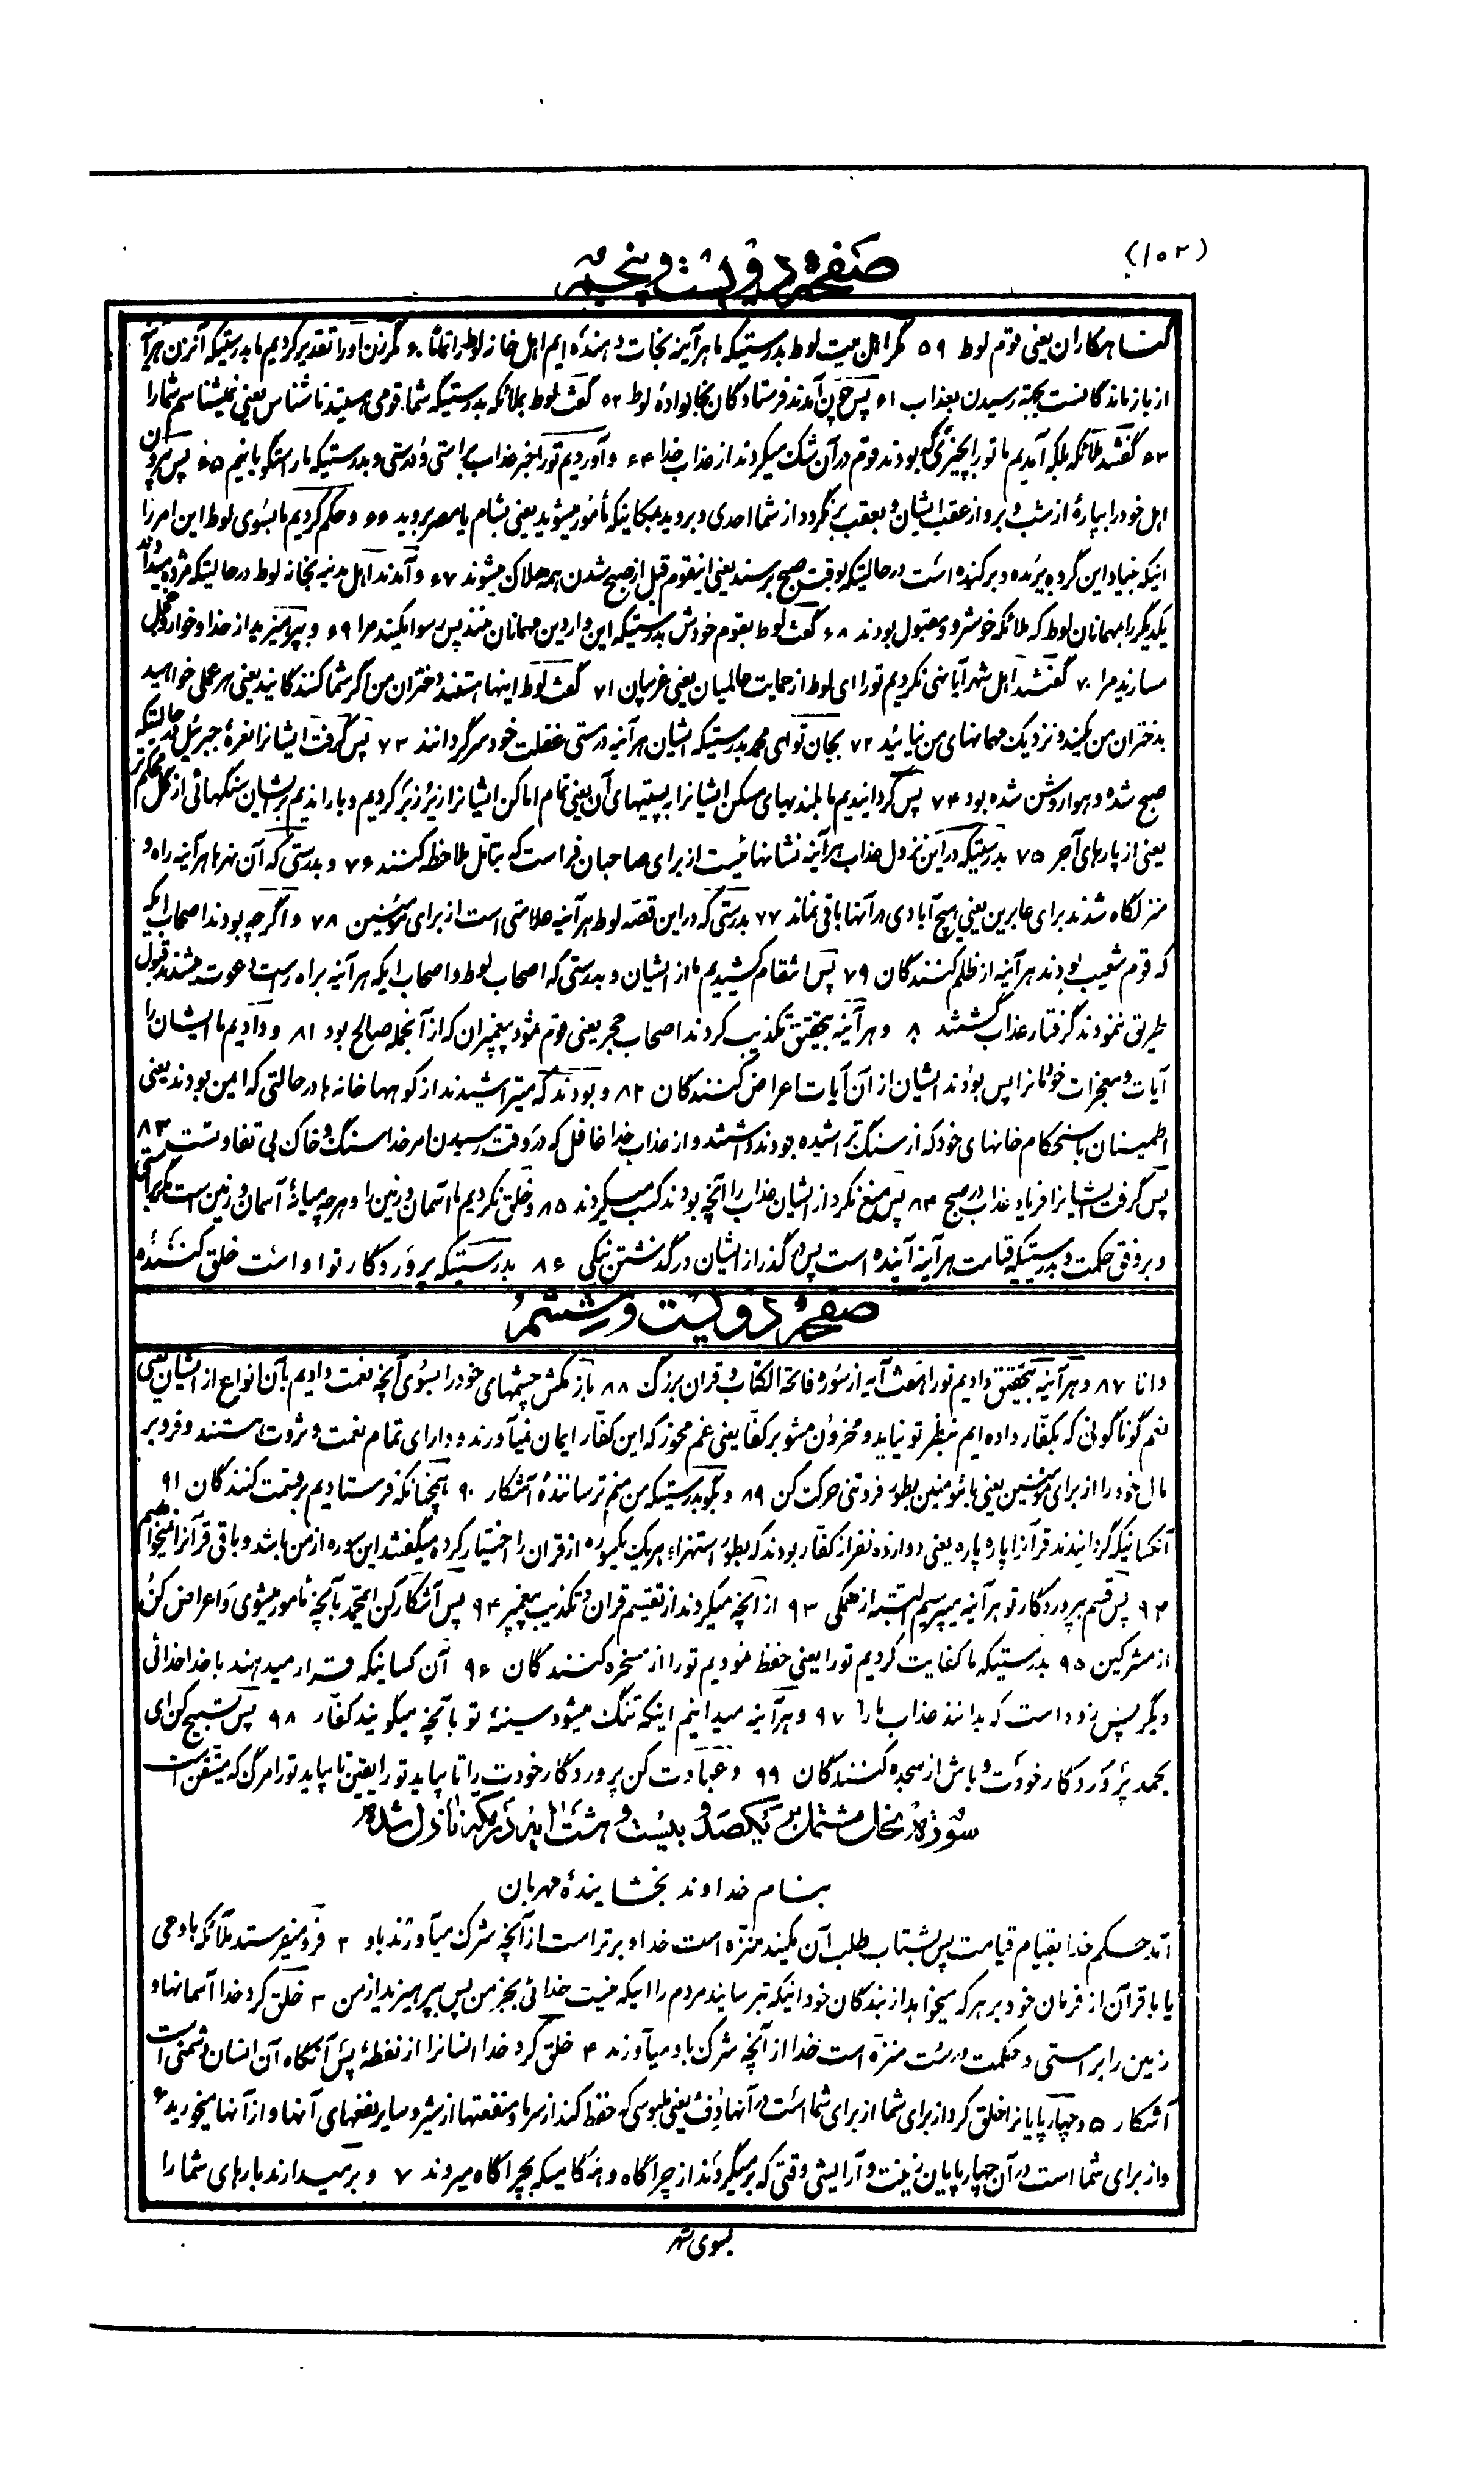 (۱۰۲)
صفحهٔ دویست و پنجم
گناهکاران یعنی قوم لوط ۵۹ مگر اهل بیت لوط بدرستیکه ما هرآینه نجات دهنده ایم اهل خانه لوط را تماماً ۶۰ مگر زن او را تقدیر کردیم ما بدرستیکه آنزن هرآینه
از باز ماندگانست بجهة رسیدن بعذاب ۶۱ پس چون آمدند فرستادگان بخانوادهٔ لوط ۶۲ گفت لوط بملائکه بدرستیکه شما قومی هستید ناشناس یعنی نمیشناسم شما را
۶۳ گفتند ملائکه بلکه آمدیم ما تو را بچیزی که بودند قوم در آن شک میکردند از عذاب خدا ۶۴ و آوردیم تو را خبر عذاب براستی و درستی و بدرستیکه ما راستگویانیم ۶۵ پس بیرون
اهل خود را بپارهٔ از شب و برو از عقب ایشان و بعقب برنگردد از شما احدی و بروید بمکانیکه مأمور میشوید یعنی بشام یا مصر بروید ۶۶ و حکم کردیم ما بسوی لوط این امر را
اینکه بنیاد این گروه بریده و برکنده است در حالتیکه بوقت صبح برسند یعنی اینقوم قبل از صبح شدن همه هلاک میشوند ۶۷ و آمدند اهل مدینه بخانه لوط در حالتیکه مژده میدادند
یکدیگر را بمهمانان لوط که ملائکه خوشرو و مقبول بودند ۶۸ گفت لوط بقوم خودش بدرستیکه این واردین مهمانان منند پس رسوا مکنید مرا ۶۹ و بپرهیزید از خدا و خوار و خجل
مسازید مرا ۷۰ گفتند اهل شهر آیا نهی نکردیم تو را ای لوط از حمایت عالمیان یعنی غریبان ۷۱ گفت لوط اینها هستند دختران من اگر شما کنندگانید یعنی هر عملی خواهید
بدختران من کنید و نزدیک مهمانهای من نیائید ۷۲ بجان تو ای محمد بدرستیکه ایشان هرآینه در مستی غفلت خود سرگردانند ۷۳ پس گرفت ایشانرا نعرهٔ جبرئیل در حالتیکه
صبح شده و هوا روشن شده بود ۷۴ پس گردانیدیم ما بلندیهای مسکن ایشانرا به پستیهای آن یعنی تمام اماکن ایشانرا زیر و زبر کردیم و بارانیدیم بر ایشان سنگهائی از گل محکم تر
یعنی از پارهای آجر ۷۵ بدرستیکه در این نزول عذاب هرآینه نشانهائیست از برای صاحبان فراست که بتأمل ملاحظه کنند ۷۶ و بدرستی که آن شهرها هرآینه راه و
منزلگاه شدند برای عابرین یعنی هیچ آبادی در آنها باقی نماند ۷۷ بدرستی که در این قصه لوط هرآینه علامتی است از برای مؤمنین ۷۸ و اگر چه بودند اصحاب ایکه
که قوم شعیب بودند هرآینه از ظلم کنندگان ۷۹ پس انتقام کشیدیم ما از ایشان و بدرستی که اصحاب لوط و اصحاب ایکه هرآینه براه راست دعوت میشدند قبول
طریق ننمودند گرفتار عذاب گشتند ۸۰ و هرآینه بتحقیق تکذیب کردند اصحاب حجر یعنی قوم ثمود پیغمبران که از آنجمله صالح بود ۸۱ و دادیم ما ایشان را
آیات و معجزات خودمانرا پس بودند ایشان از آن آیات اعراض کنندگان ۸۲ و بودند که میتراشیدند از کوهها خانه ها در حالتی که امین بودند یعنی
اطمینان باستحکام خانهای خود که از سنگ تراشیده بودند داشتند و از عذاب خدا غافل که در وقت رسیدن امر خدا سنگ و خاک بی تفاوتست ۸۳
پس گرفت ایشانرا فریاد عذاب در صبح ۸۴ پس منع نکرد از ایشان عذاب را آنچه بودند کسب میکردند ۸۵ و خلق نکردیم ما آسمان و زمین را و هر چه میانهٔ آسمان و زمین است مگر براستی
و بر وفق حکمت و بدرستیکه قیامت هرآینه آینده است پس در گذر از ایشان در گذشتن نیکی ۸۶ بدرستیکه پروردگار تو او است خلق کننده
صفحهٔ دویست و ششم
دانا ۸۷ و هرآینه بتحقیق دادیم تو را هفت آیه از سوره فاتحة الکتاب و قران بزرگ ۸۸ باز مکش چشمهای خود را بسوی آنچه نعمت دادیم بآن انواع از ایشان یعنی
نعم گوناگونی که بکفار داده ایم بنظر تو نیاید و محزون مشو بر کفار یعنی غم مخور که این کفار ایمان نمیآورند و دارای تمام نعمت و ثروت هستند و فرو بر
بال خود را از برای مؤمنین یعنی با مؤمنین بطور فروتنی حرکت کن ۸۹ و بگو بدرستیکه من منم ترسانندهٔ آشکار ۹۰ همچنانکه فرستادیم بر قسمت کنندگان ۹۱
آنکسانیکه گردانیدند قرآنرا پاره پاره یعنی دوازده نفر از کفار بودند که بطور استهزاء هر یک یکسوره از قران را اختیار کرده میگفتند این سوره از من باشد و باقی قرآنرا نمیخواهیم
۹۲ پس قسم بپروردگار تو هرآینه میپرسیم البته از همگی ۹۳ از آنچه میکردند از تقسیم قران و تکذیب پیغمبر ۹۴ پس آشکار کن ایمحمد بآنچه مأمور میشوی و اعراض کن
از مشرکین ۹۵ بدرستیکه ما کفایت کردیم تو را یعنی حفظ نمودیم تو را از مسخره کنندگان ۹۶ آن کسانیکه قرار میدهند با خدا خدائی
دیگر پس زود است که بدانند عذاب ما را ۹۷ و هرآینه میدانیم اینکه تنگ میشود سینهٔ تو بآنچه میگویند کفار ۹۸ پس تسبیح کن ای
بحمد پروردگار خودت و باش از سجده کنندگان ۹۹ و عبادت کن پروردگار خودت را تا بیاید تو را یقین تا بیاید تو را مرگ که متیقن است
سورهٔ نحل مشتمل بر یکصد و بیست و هشت ایه در مکه نازل شده
بنام خداوند بخشایندهٔ مهربان
آمد حکم خدا بقیام قیامت پس بشتاب طلب آن مکنید منزه است خدا و برتر است از آنچه شرک میآورند باو ۲ فرو میفرستد ملآئکه با وحی
یا با قرآن از فرمان خود بر هر که میخواهد از بندگان خود اینکه بترسانید مردم را اینکه نیست خدائی بجز من پس بپرهیزید از من ۳ خلق کرد خدا آسمانها و
زمین را براستی و حکمت درست منزه است خدا از آنچه شرک باو میآورند ۴ خلق کرد خدا انسانرا از نطفهٔ پس آنگاه آن انسان دشمنی است
آشکار ۵ و چهارپایانرا خلق کرد از برای شما از برای شما است در آنها دفء یعنی ملبوسی که حفظ کند از سرما و منفعتها از شیر و سایر نفعهای آنها و از آنها میخورید ۶
و از برای شما است در آن چهارپایان زینت و آرایشی وقتی که بر میگردند از چراگاه و هنگامیکه بچراگاه میروند ۷ و بر میدارند بارهای شما را
بسوی شهر